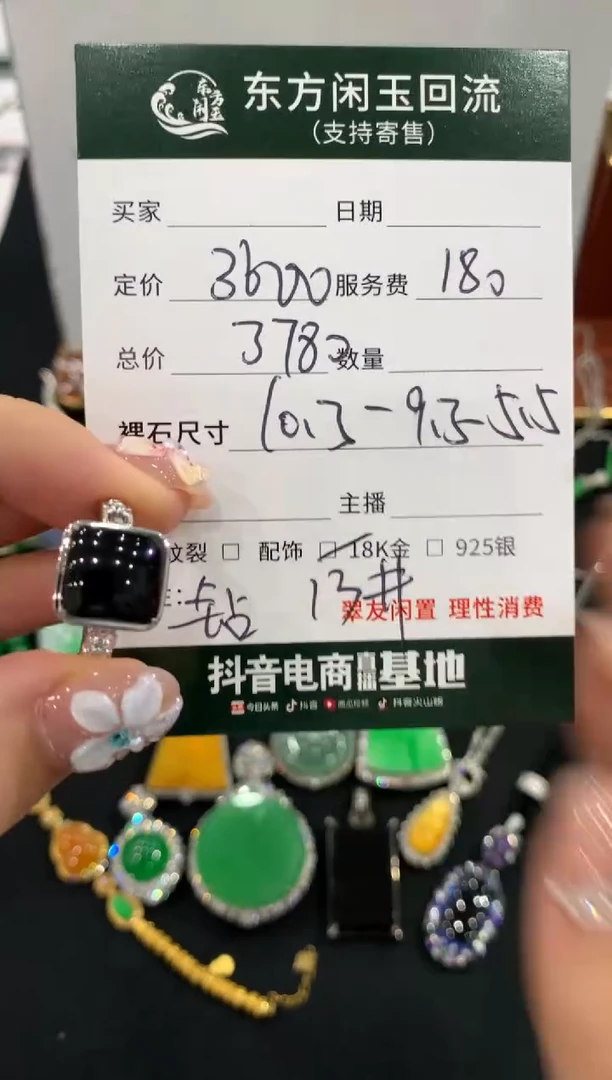 东方闲玉
东方闲玉回流
(支持寄售)
买家 日期
定价 3600 服务费 180
总价 3780 数量
裸石尺寸 10.3-9.5-5.5
主播
纹裂 □ 配饰 □ 18K金 □ 925银
: 钻 13#
翠友闲置 理性消费
抖音电商直播基地
今日头条 抖音 西瓜视频 抖音火山版